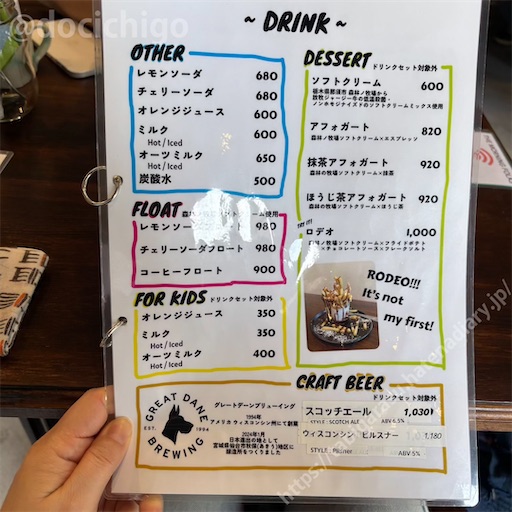 @docichigo
~ DRINK ~
OTHER
レモンソーダ 680
チェリーソーダ 680
オレンジジュース 600
ミルク 600
Hot / Iced
オーツミルク 650
Hot / Iced
炭酸水 500
FLOAT 森林ノ牧場ソフトクリーム使用
レモンソーダ 980
チェリーソーダフロート 980
コーヒーフロート 900
FOR KIDS ドリンクセット対象外
オレンジジュース 350
ミルク 350
Hot / Iced
オーツミルク 400
Hot / Iced
DESSERT ドリンクセット対象外
ソフトクリーム 600
栃木県那須市 森林ノ牧場から
放牧ジャージー牛の低温殺菌・
ノンホモジナイズドのソフトクリームミックス使用
アフォガート 820
森林ノ牧場ソフトクリーム×エスプレッソ
抹茶アフォガート 920
森林の牧場ソフトクリーム×抹茶
ほうじ茶アフォガート 920
森林の牧場ソフトクリーム×ほうじ茶
TRY IT!!
ロデオ 1,000
森林ノ牧場ソフトクリーム×フライドポテト
×チョコレートソース×フレークソルト
RODEO!!!
It's not
my first!
CRAFT BEER
ドリンクセット対象外
GREAT DANE
EST. 1994
BREWING
グレートデーンブリューイング
1994年
アメリカ ウィスコンシン州にて創業
2024年1月
日本進出の地として
宮城県仙台市秋保(あきう)地区に
醸造所をつくりました
スコッチエール 1,030
STYLE : SCOTCH ALE ABV 6.5%
ウィスコンシン ピルスナー 1,180
STYLE : Pilsner ABV 5%